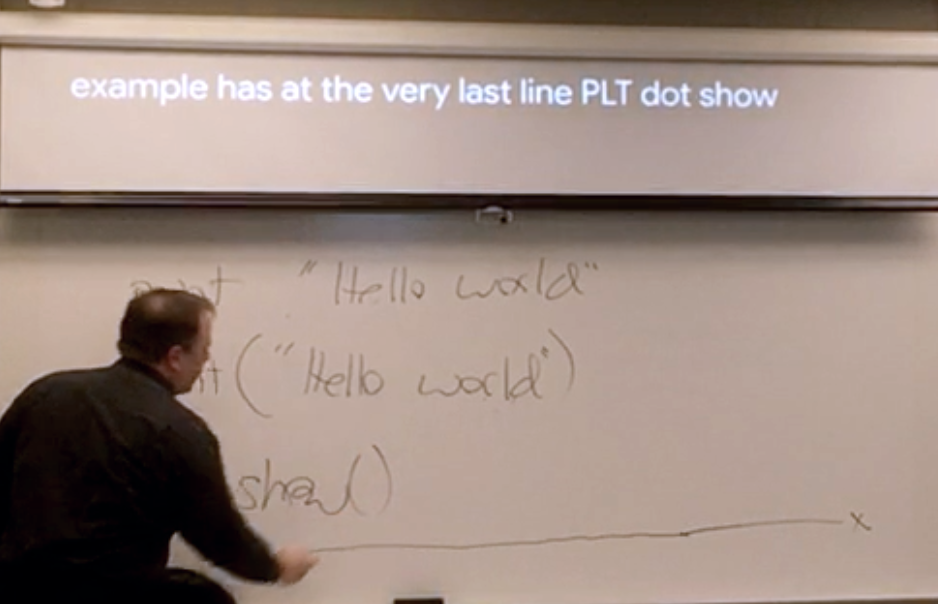 example has at the very last line PLT dot show
print "Hello world"
("Hello world")
show()
x